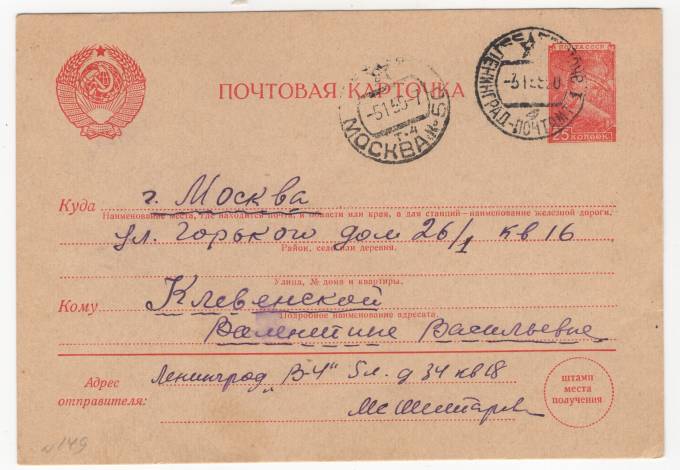 ПОЧТОВАЯ КАРТОЧКА
ПОЧТА СССР
25 КОПЕЕК
ЛЕНИНГРАД-ПОЧТАМТ
МОСКВА
Т-4
Куда г. Москва
Наименование места, где находится почта, и области или края, а для станций—наименование железной дороги.
ул. Горького дом 26/1 кв 16
Район, село или деревня.
Улица, № дома и квартиры.
Кому Клевенской
Подробное наименование адресата.
Валентине Васильевне
Адрес
отправителя:
Ленинград „В-4" 5 л. д 34 кв 18
ШТАМП
МЕСТА
ПОЛУЧЕНИЯ
№149